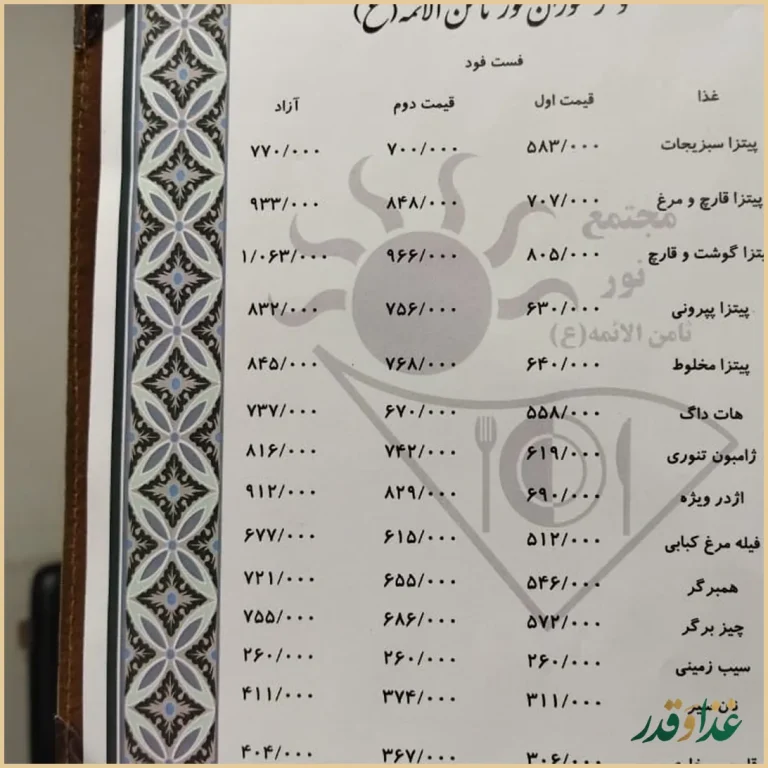 ثامن الائمه (ع)
فست فود
غذا قیمت اول قیمت دوم آزاد
پیتزا سبزیجات ۵۸۳/۰۰۰ ۷۰۰/۰۰۰ ۷۷۰/۰۰۰
پیتزا قارچ و مرغ ۷۰۷/۰۰۰ ۸۴۸/۰۰۰ ۹۳۳/۰۰۰
یتزا گوشت و قارچ ۸۰۵/۰۰۰ ۹۶۶/۰۰۰ ۱/۰۶۳/۰۰۰
پیتزا پپرونی ۶۳۰/۰۰۰ ۷۵۶/۰۰۰ ۸۳۲/۰۰۰
پیتزا مخلوط ۶۴۰/۰۰۰ ۷۶۸/۰۰۰ ۸۴۵/۰۰۰
هات داگ ۵۵۸/۰۰۰ ۶۷۰/۰۰۰ ۷۳۷/۰۰۰
ژامبون تنوری ۶۱۹/۰۰۰ ۷۴۲/۰۰۰ ۸۱۶/۰۰۰
اژدر ویژه ۶۹۰/۰۰۰ ۸۲۹/۰۰۰ ۹۱۲/۰۰۰
فیله مرغ کبابی ۵۱۲/۰۰۰ ۶۱۵/۰۰۰ ۶۷۷/۰۰۰
همبرگر ۵۴۶/۰۰۰ ۶۵۵/۰۰۰ ۷۲۱/۰۰۰
چیز برگر ۵۷۲/۰۰۰ ۶۸۶/۰۰۰ ۷۵۵/۰۰۰
سیب زمینی ۲۶۰/۰۰۰ ۲۶۰/۰۰۰ ۲۶۰/۰۰۰
نان سیر ۳۱۱/۰۰۰ ۳۷۴/۰۰۰ ۴۱۱/۰۰۰
۳۰۶/۰۰۰ ۳۶۷/۰۰۰ ۴۰۴/۰۰۰
مجتمع
نور
ثامن الائمه (ع)
غذا و قدر